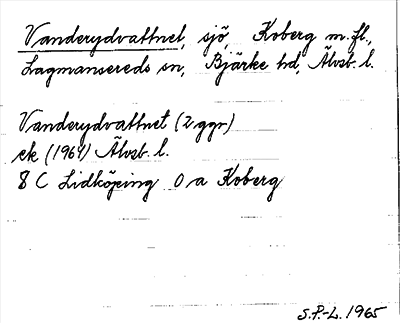 Vanderydvattnet, sjö, Koberg m.fl.,
Lagmansereds sn, Bjärke hd, Älvsb. l.
Vanderydvattnet (2 ggr)
ek (1964) Älvsb. l.
8 C Lidköping 0 a Koberg
S.P.-L. 1965